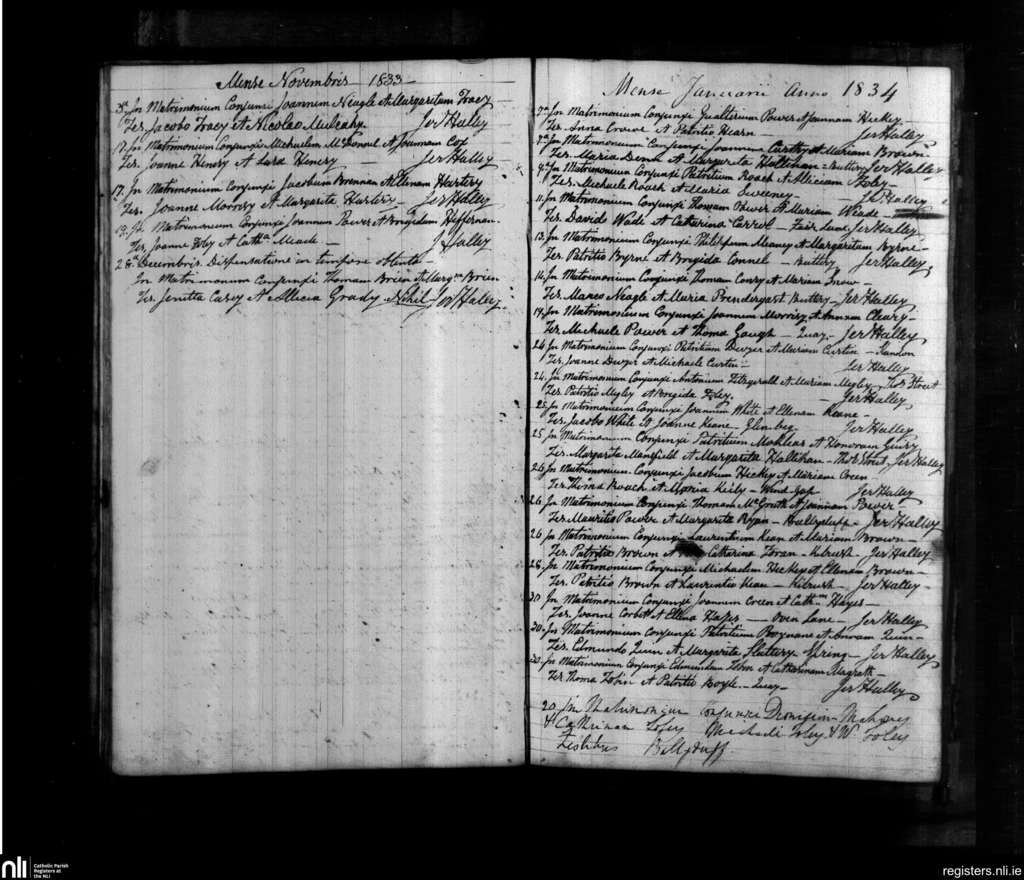 Mense Novembris 1833
In Matrimonium Conjunxi Joannem Neagle et Margaritam Tracy
Tes. Jacobo Tracy et Nicolao Mulcahy. Jer Halley
In Matrimonium Conjunxi Michaelem et Joannam Cox
Tes. Joanne Henry et Henery Jer Halley
17. In Matrimonium Conjunxi Jacobum Brennan et Ellenam Hartery
Tes. Joanne et Margarita Hartery Jer Halley
19. In Matrimonium Conjunxi Joannem Power et Brigidam Heffernan
Tes. Joanne Foly et Cath Meade J Halley
28 Decembris Dispensatione in tempore
In Matrimonium Conjunxi Thomam Brien et Brien
Tes. Carey et Allicia Grady Nihil Jer Haley
Mense Januarii Anno 1834
In Matrimonium Conjunxi Gualterium Power et Joannam Hickey
Tes. Anna et Patritio Hearn Jer Halley
In Matrimonium Conjunxi Joannem et Mariam Brown
Tes. Maria et Margarita Jer Halley
In Matrimonium Conjunxi Patritium Roach et Alliciam Foley
Tes. Michaele Roach et Maria Sweeney Jer Halley
11. In Matrimonium Conjunxi Thomam Power et Mariam Wade
Tes. David Wade et Catharina Fair Lane Jer Halley
13. In Matrimonium Conjunxi Philippum Meany et Margaritam Byrne
Tes. Patritio Byrne et Brigida Connel Jer Halley
14. In Matrimonium Conjunxi Thomam et Mariam Snow
Tes. Marco Neagle et Maria Prendergast Jer Halley
In Matrimonium Conjunxi Joannem et Annam Cleary
Tes. Michaele Power et Thoma Gough Quay Jer Halley
24 In Matrimonium Conjunxi Patritium Dwyer et Mariam Curtin
Tes. Joanne Dwyer et Michaele Curtin Jer Halley
24. In Matrimonium Conjunxi Antonium Fitzgerald et Mariam Thos Street
Tes. Patritio et Brigida Foley. Jer Halley
25. In Matrimonium Conjunxi Joannem White et Ellenam Keane
Tes. Jacobo White et Joanne Keane Jer Halley
25 In Matrimonium Conjunxi Patritium et Honoram
Tes. Margarita Mansfield et Margarita Thos Street. Jer Halley
26. In Matrimonium Conjunxi Jacobum Hickey et Mariam
Tes. Thoma Roach et Maria Kiely Wind Gap Jer Halley
26. In Matrimonium Conjunxi Thomam McGrath et Joannam Power
Tes. Mauritio Power et Margarita Ryan Jer Halley
26 In Matrimonium Conjunxi Laurentium Kean et Mariam Brown
Tes. Patritio Brown et Catharina Kilrush Jer Halley
28. In Matrimonium Conjunxi Michaelem Hickey et Ellenam Brown
Tes. Patritio Brown et Laurentio Kean Kilrush Jer Halley
In Matrimonium Conjunxi Joannem et Cath Hayes
Tes. Joanne Corbett et Ellena Hayes Oven Lane Jer Halley
30. In Matrimonium Conjunxi Patritium et Annam Quinn
Tes. Edmundo Quin et Margarita Slattery Spring Jer Halley
30. In Matrimonium Conjunxi Edmundum et Catharinam Magrath
Tes. Thoma et Patritio Boyle Quay Jer Halley
20 In Matrimonium Conjunxi Dionisium
& Catherinam Michaele Foley & W Foley
Testibus
nli
Catholic Parish
Registers at
the NLI
registers.nli.ie